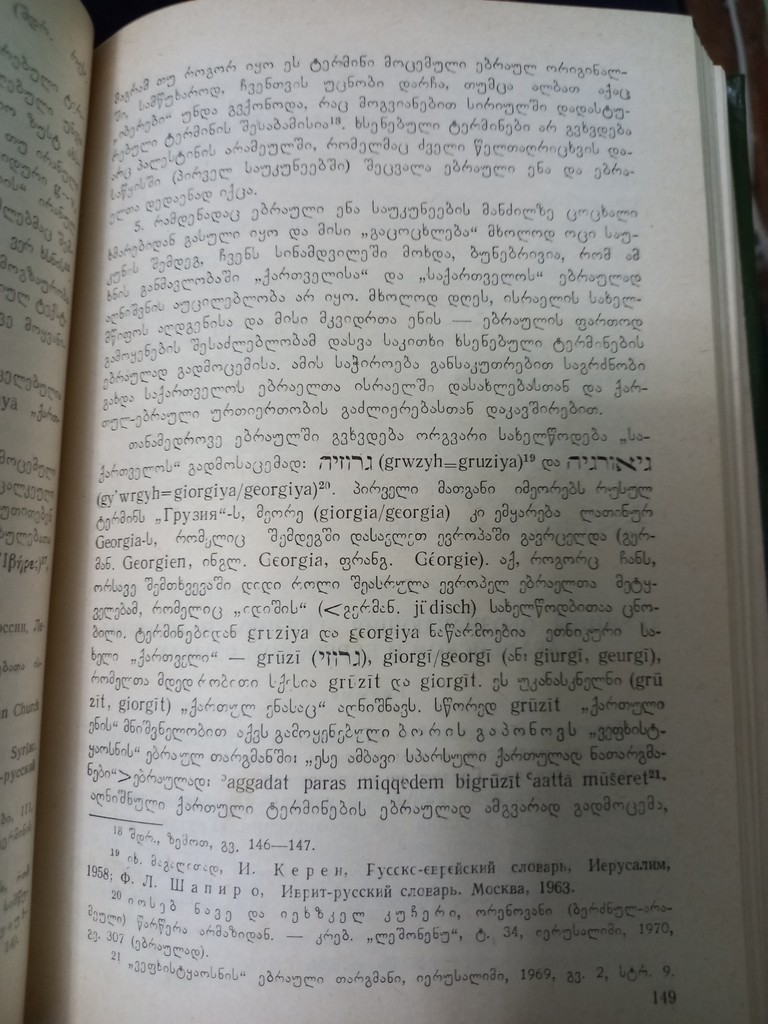 მაგრამ თუ როგორ იყო ეს ტერმინი მოცემული ებრაულ ორიგინალ-
ში სამწუხაროდ, ჩვენთვის უცნობი დარჩა, თუმცა ალბათ აქაც
„იბერები“ უნდა გვქონოდა, რაც მოგვიანებით სირიულში დადასტუ-
რებული ტერმინის შესაბამისია¹⁸. ხსენებული ტერმინები არ გვხვდება
არც პალესტინის არამეულში, რომელმაც ძველი წელთაღრიცხვის და-
საწყისში (პირველ საუკუნეებში) შეცვალა ებრაული ენა და ებრა-
ელთა დედაენად იქცა.
5. რამდენადაც ებრაული ენა საუკუნეების მანძილზე ცოცხალი
ხმარებიდან გასული იყო და მისი „გაცოცხლება“ მხოლოდ ოცი საუ-
კუნის შემდეგ, ჩვენს სინამდვილეში მოხდა, ბუნებრივია, რომ ამ
ხნის განმავლობაში „ქართველისა“ და „საქართველოს“ ებრაულად
აღნიშვნის აუცილებლობა არ იყო. მხოლოდ დღეს, ისრაელის სახელ-
მწიფოს აღდგენისა და მისი მკვიდრთა ენის — ებრაულის ფართოდ
გამოყენების შესაძლებლობამ დასვა საკითხი ხსენებული ტერმინების
ებრაულად გადმოცემისა. ამის საჭიროება განსაკუთრებით საგრძნობი
გახდა საქართველოს ებრაელთა ისრაელში დასახლებასთან და ქარ-
თულ-ებრაული ურთიერთობის გაძლიერებასთან დაკავშირებით.
თანამედროვე ებრაულში გვხვდება ორგვარი სახელწოდება „სა-
ქართველოს“ გადმოსაცემად: גרוזיה (grwzyh=gruziya)¹⁹ და גיאורגיה
(gy’wrgyh=giorgiya/georgiya)²⁰. პირველი მათგანი იმეორებს რუსულ
ტერმინს „Грузия“-ს, მეორე (giorgia/georgia) კი ემყარება ლათინურ
Georgia-ს, რომელიც შემდეგში დასავლეთ ევროპაში გავრცელდა (გერ-
მან. Georgien, ინგლ. Georgia, ფრანგ. Géorgie). აქ, როგორც ჩანს,
ორსავე შემთხვევაში დიდი როლი შეასრულა ევროპელ ებრაელთა მეტყ-
ველებამ, რომელიც „იდიშის“ (<გერმან. jüdisch) სახელწოდებითაა ცნო-
ბილი. ტერმინებიდან gruziya და georgiya ნაწარმოებია ეთნიკური სა-
ხელი „ქართველი“ — grūzī (גרוזי), giorgī/georgī (ან: giurgī, geurgī),
რომელთა მდედრობითი სქესია grūzīt და giorgīt. ეს უკანასკნელნი (grū
zīt, giorgīt) „ქართულ ენასაც“ აღნიშნავს. სწორედ grūzīt „ქართული
ენის“ მნიშვნელობით აქვს გამოყენებული ბორის გაპონოვს „ვეფხისტ-
ყაოსნის“ ებრაულ თარგმანში: „ესე ამბავი სპარსული ქართულად ნათარგმა-
ნები“>ებრაულად: ʾaggadat paras miqqedem bigrūzīt ʿaattā mūšeret²¹.
აღნიშნული ქართული ტერმინების ებრაულად ამგვარად გადმოცემა,
¹⁸ შდრ., ზემოთ, გვ. 146—147.
¹⁹ იხ. მაგალითად, И. Керен, Русско-еврейский словарь, Иерусалим,
1958; Ф. Л. Шапиро, Иврит-русский словарь. Москва, 1963.
²⁰ იოსებ ნავე და იეხზკელ კუჩერი, ორენოვანი (ბერძნულ-არა-
მეული) წარწერა არმაზიდან. — კრებ. „ლეშონენუ“, ტ. 34, იერუსალიმი, 1970,
გვ. 307 (ებრაულად).
²¹ „ვეფხისტყაოსნის“ ებრაული თარგმანი, იერუსალიმი, 1969, გვ. 2, სტრ. 9.
149